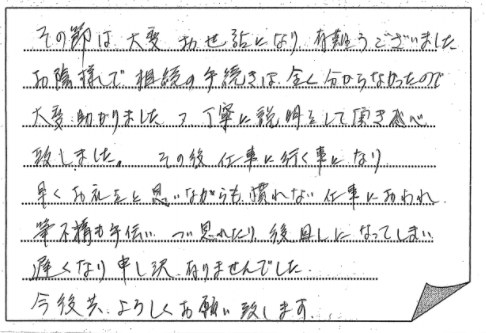 その節は大変お世話になり有難うございました
お陰様で相続の手続きは全く分からなかったので
大変助かりました 丁寧に説明をして頂き
致しました。その後仕事に行く事になり
早くお礼をと思いながらも慣れない仕事におわれ
筆不精も手伝い つい忘れたり後回しになってしまい
遅くなり申し訳ありませんでした
今後共よろしくお願い致します